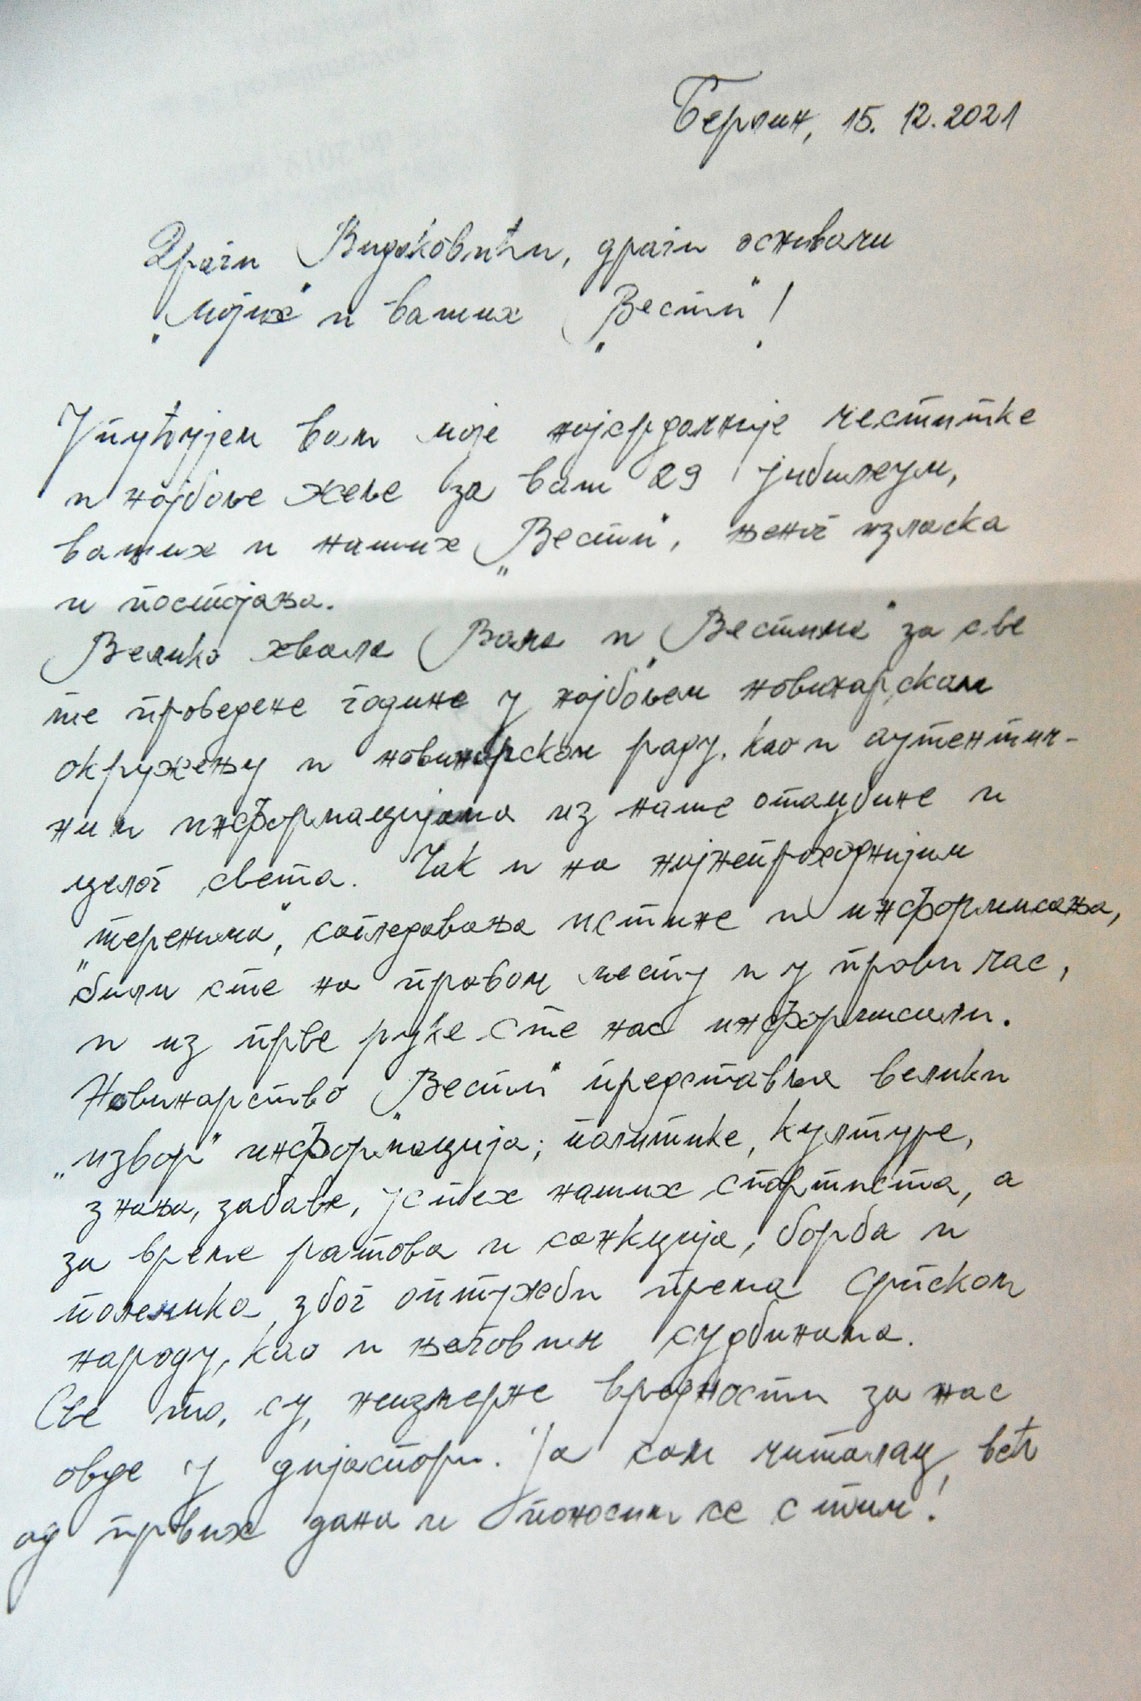 Берлин, 15. 12. 2021
Драги Видаковићи, драги оснивачи
„мојих“ и ваших „Вести“!
Упућујем вам моје најсрдачније честитке
и најбоље жеље за ваш 29 јубилеум,
ваших и наших „Вести“, њеног изласка
и постојања.
Велика хвала Вама и „Вестима“ за све
те проведене године у најбољем новинарском
окружењу и новинарском раду, као и аутентич-
ним информацијама из наше отаџбине и
целог света. Чак и на најнепроходнијим
„теренима“, сагледавања истине и информисања,
били сте на правом месту и у прави час,
и из прве руке сте нас информисали.
Новинарство „Вести“ представља велики
„извор“ информација; политике, културе,
знања, забаве, успех наших спортиста, а
за време ратова и санкција, борба и
полемика, због оптужби према Српском
народу, као и његовим судбинама.
Све то, су, неизмерне вредности за нас
овде у дијаспори. Ја сам читалац, већ
од првих дана и поносим се с тим!